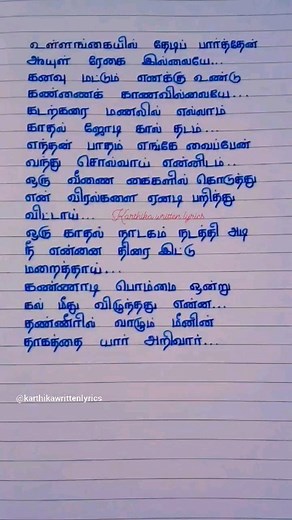 உள்ளங்கையில் தேடிப் பார்த்தேன்
ஆயுள் ரேகை இல்லையே...
கனவு மட்டும் எனக்கு உண்டு
கண்ணைக் காணவில்லையே...
கடற்கரை மணலில் எல்லாம்
காதல் ஜோடி கால் தடம்...
எந்தன் பாதம் எங்கே வைப்பேன்
வந்து சொல்வாய் என்னிடம்...
ஒரு வீணை கைகளில் கொடுத்து
என் விரல்களை ஏனடி பறித்து
விட்டாய்... Karthika written lyrics
ஒரு காதல் நாடகம் நடத்தி அடி
நீ என்னை திரை இட்டு
மறைத்தாய்...
கண்ணாடி பொம்மை ஒன்று
கல் மீது விழுந்தது என்ன...
தண்ணீரில் வாடும் மீனின்
தாகத்தை யார் அறிவார்...
@karthikawrittenlyrics